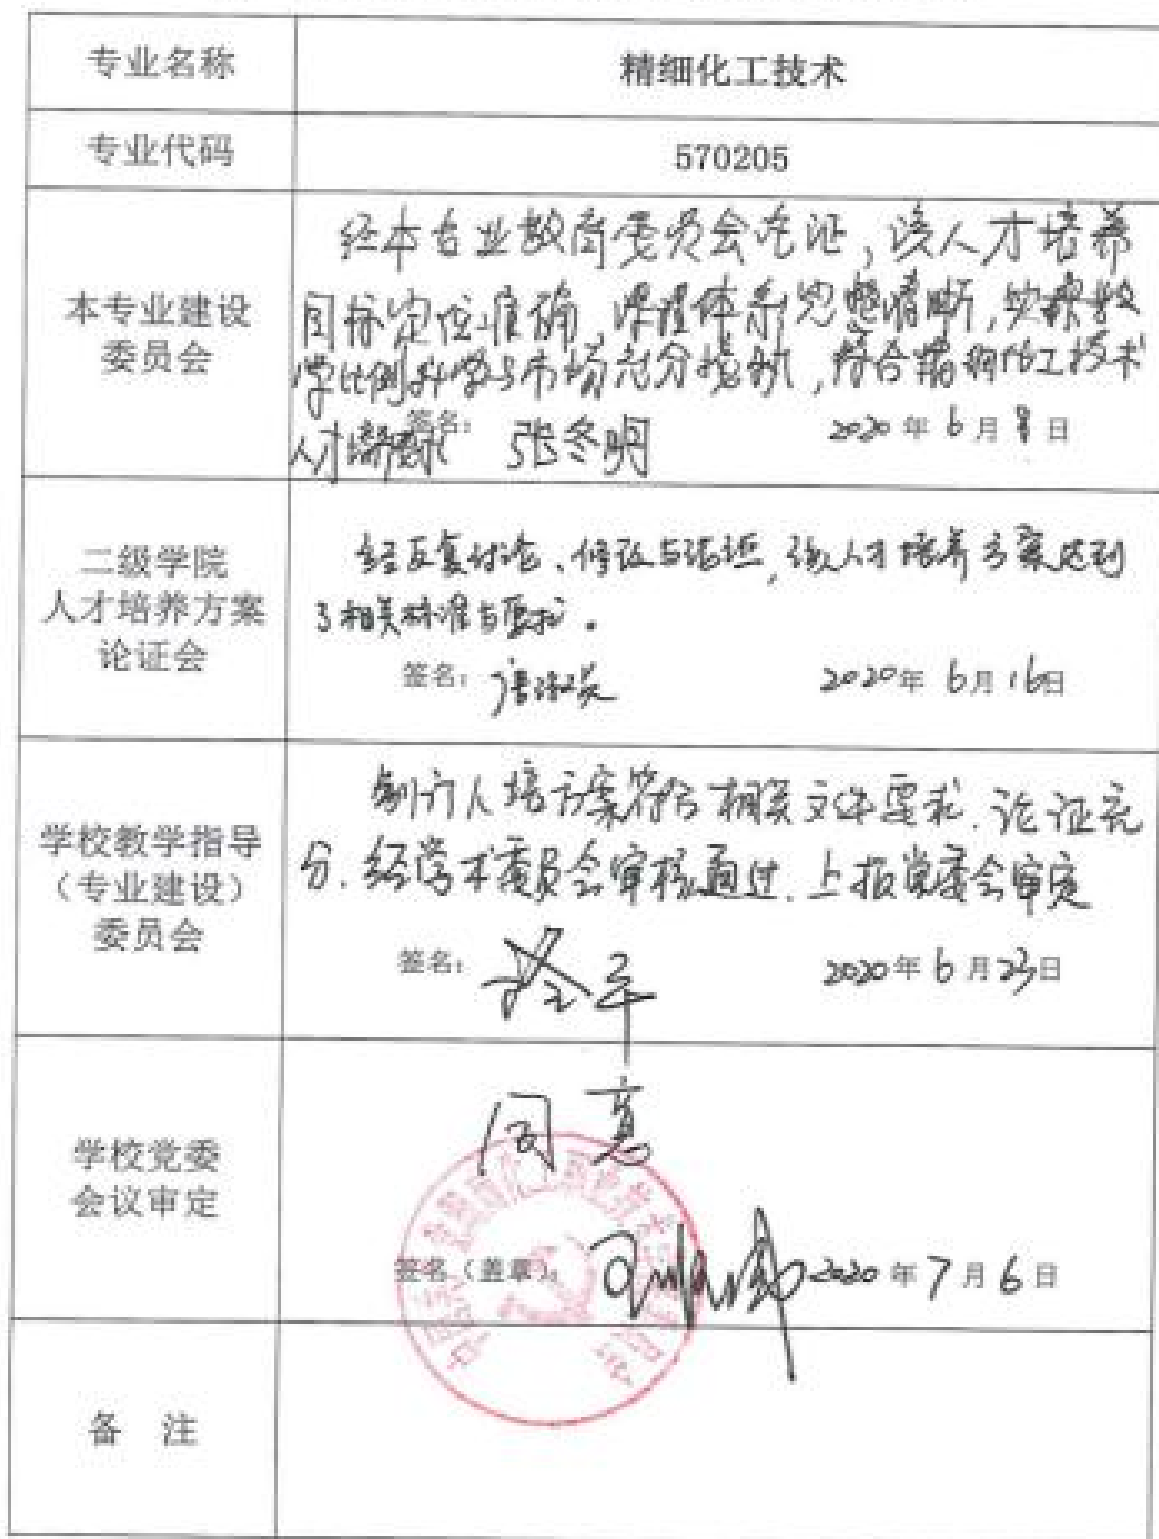 专业名称
精细化工技术
专业代码
570205
本专业建设
委员会
经本专业教育委员会论证，该人才培养
目标定位准确，课程体系思想清晰，
学比例科学与市场充分接轨，符合精细化工技术
人才培养 签名： 张冬明 2020年6月 日
二级学院
人才培养方案
论证会
经反复讨论、修改与论证，该人才培养方案达到
了相关标准与要求。
签名： 唐淑贞 2020年6月16日
学校教学指导
（专业建设）
委员会
制订人培方案符合相关文件要求，论证充
分，经学术委员会审核通过，上报党委会审定
签名： 2020年6月23日
学校党委
会议审定
同意
签名（盖章）： 2020年7月6日
备 注